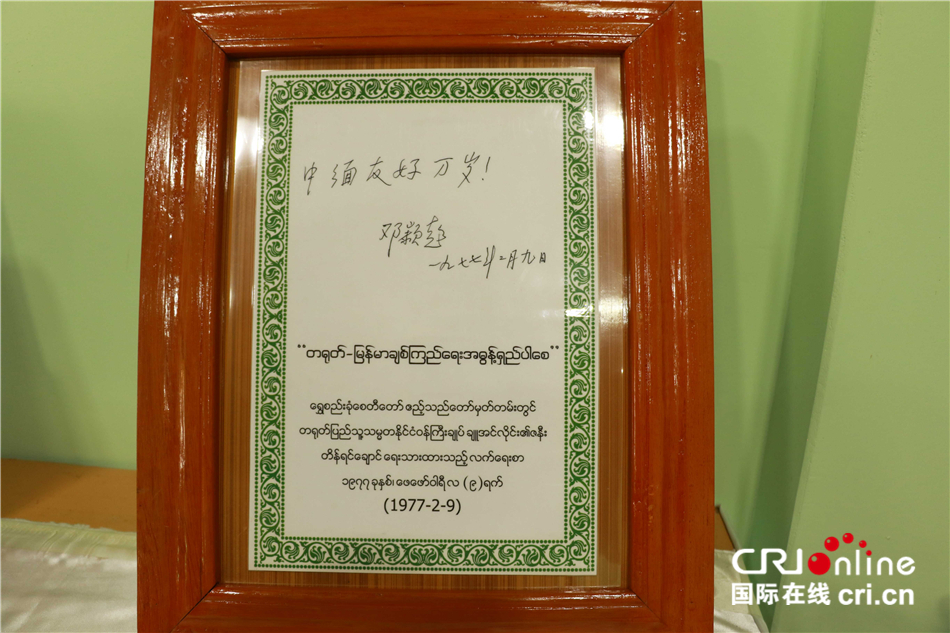 中缅友好万岁!
邓颖超
一九七七年二月九日
"တရုတ်-မြန်မာချစ်ကြည်ရေးအဓွန့်ရှည်ပါစေ"
ရွှေစည်းခုံစေတီတော် ဧည့်သည်တော်မှတ်တမ်းတွင်
တရုတ်ပြည်သူ့သမ္မတနိုင်ငံဝန်ကြီးချုပ် ချူအင်လိုင်း၏ဇနီး
တိန်ရင်ချောင် ရေးသားထားသည့် လက်ရေးစာ
၁၉၇၇ ခုနှစ်၊ ဖေဖော်ဝါရီလ (၉) ရက်
(1977-2-9)
CRI Online
国际在线 cri.cn